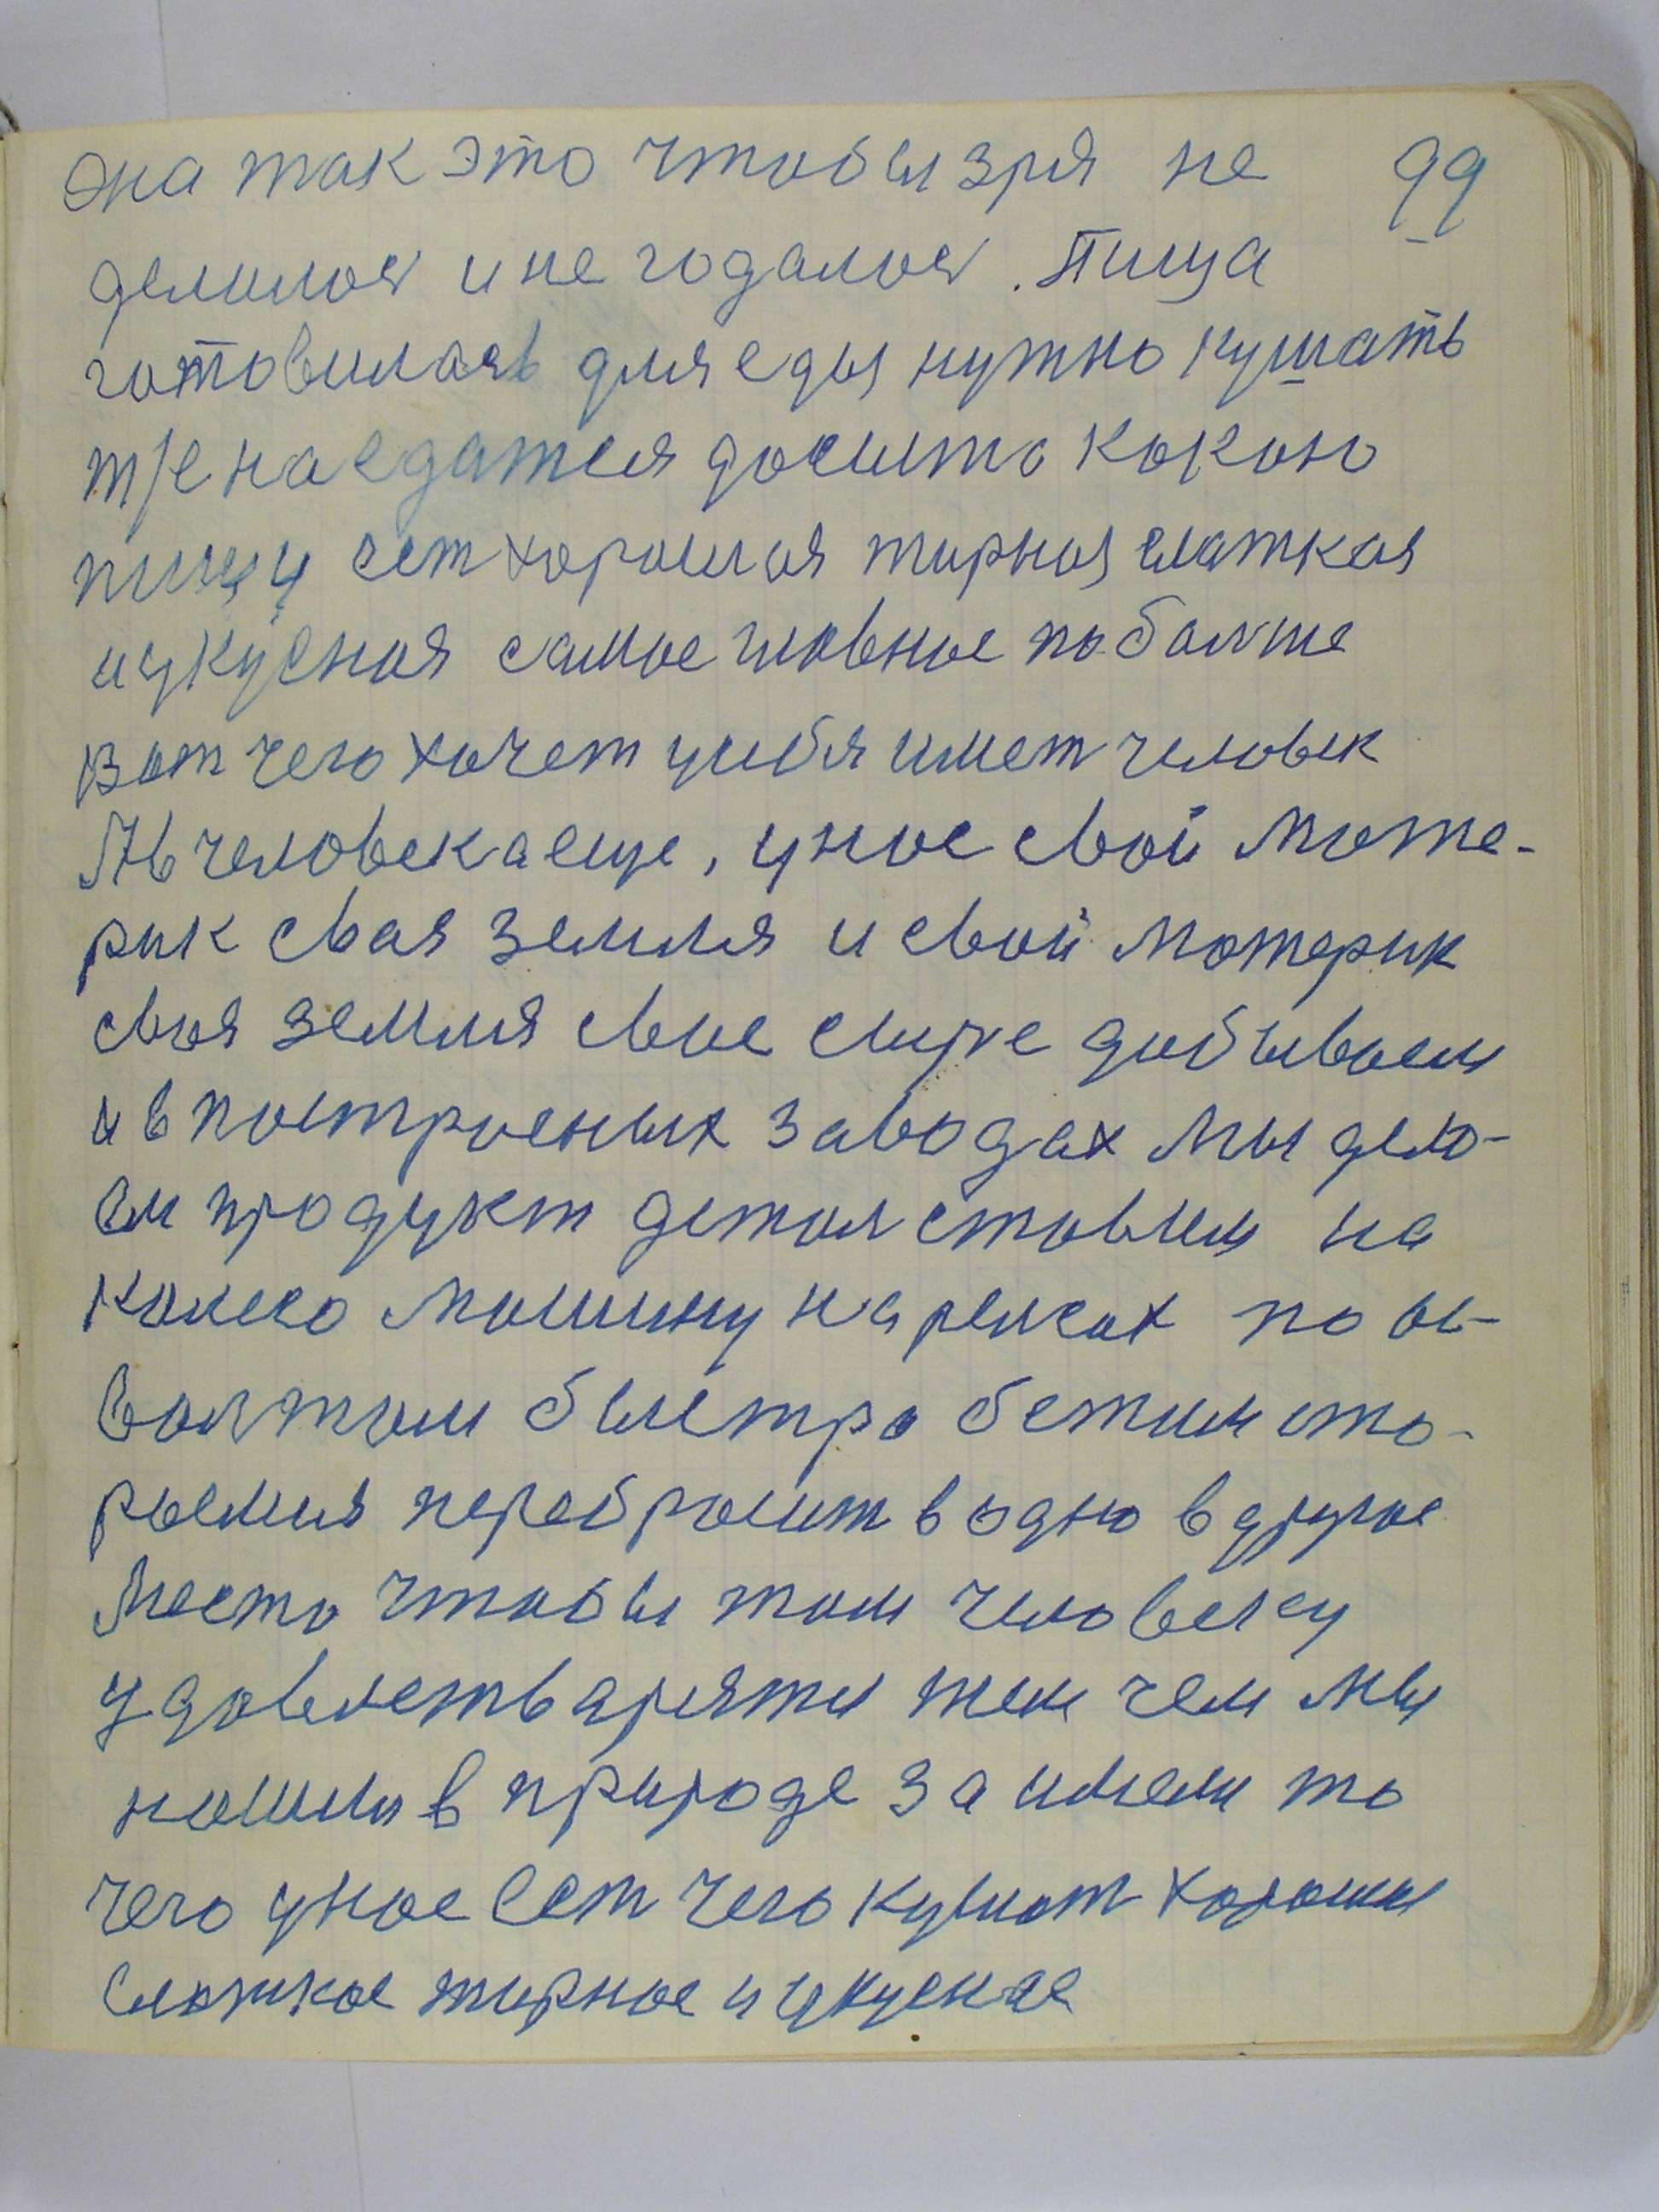 она так это чтобы зря не 99
делилося и не гадалося. Пища
готовилась для еды нужно кушать
т/е наедатся досыто какою
пищу ест хорошая жирная слаткая
и укусная самое главное поболше
вот чего хочет у себя имет человек
А в человека еще, у нас свой мате-
рик свая земля и свой материк
своя земля свое сырье добываем
и в построеных заводах мы дела-
ем продукт детал ставим на
колесо машину на релсах по ас-
валтам быстро бежим ста-
раемся перебросит в одно в другое
место чтобы там человеку
удовлетваряти тем чем мы
нашли в природе заимели то
чего у нас ест чего кушат хорошии
слаткое жирное и укусное